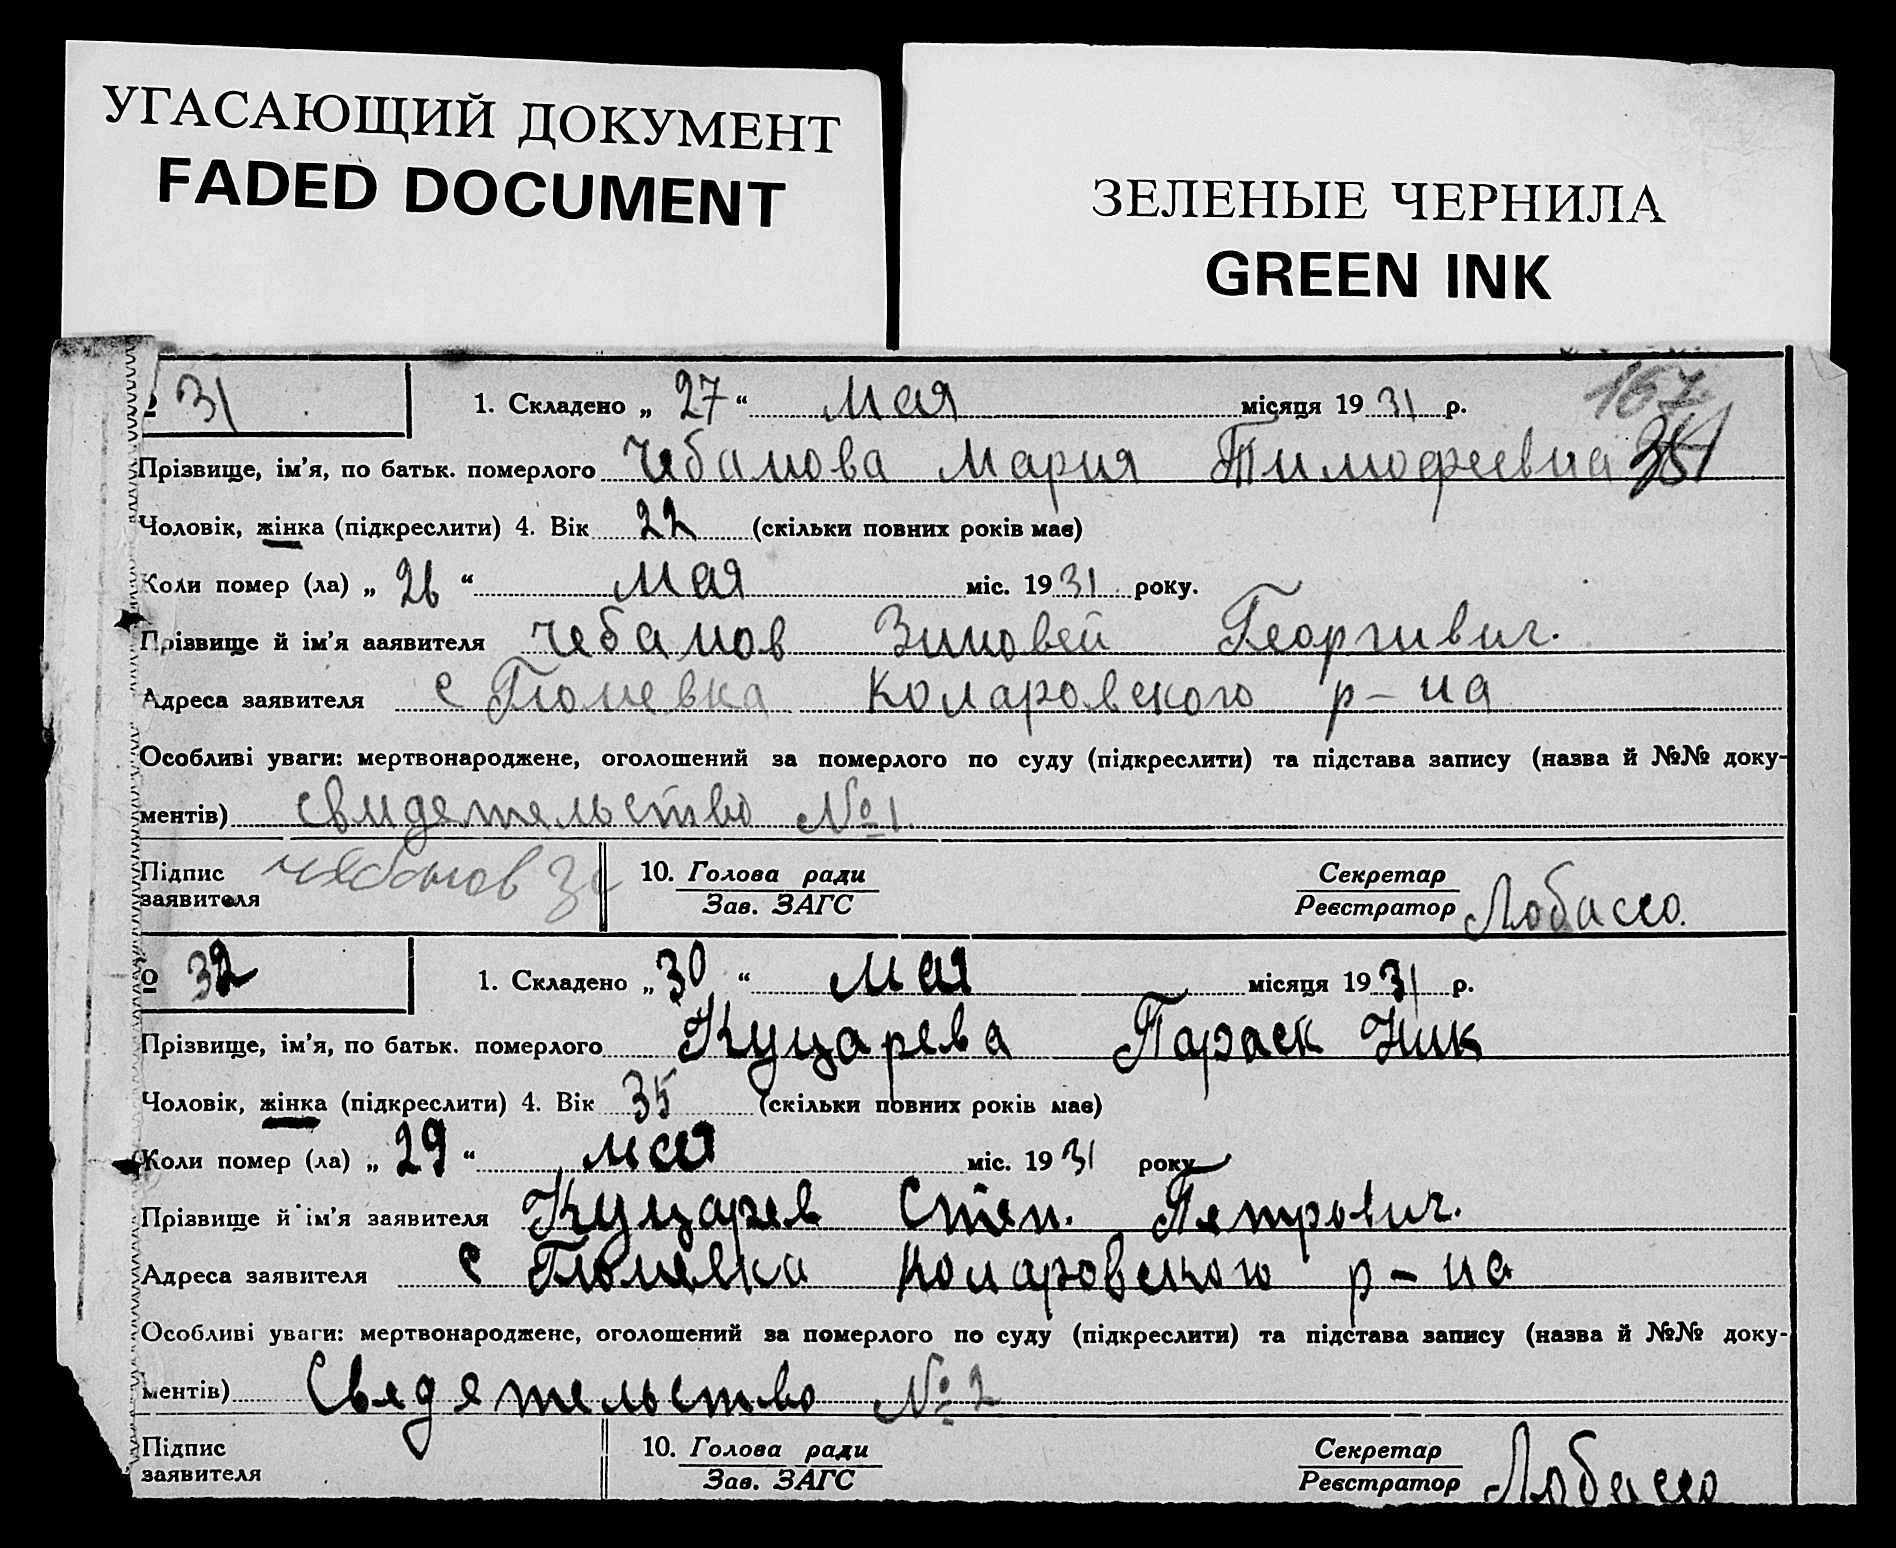 УГАСАЮЩИЙ ДОКУМЕНТ
FADED DOCUMENT
ЗЕЛЕНЫЕ ЧЕРНИЛА
GREEN INK
167
31 1. Складено „ 27 “ мая місяця 19 31 р.
Прізвище, ім’я, по батьк. померлого Чебанова Мария Тимофеевна
Чоловік, жінка (підкреслити) 4. Вік 22 (скільки повних років має)
Коли помер (ла) „ 26 “ мая міс. 19 31 року.
Прізвище й ім’я заявителя Чебанов Зиновей Георгивич.
Адреса заявителя с Гюневка Коларовского р-на
Особливі уваги: мертвонароджене, оголошений за померлого по суду (підкреслити) та підстава запису (назва й №№ доку-
ментів) свидетельство № 1.
Підпис заявителя 10. Голова ради Секретар
Зав. ЗАГС Реєстратор
№ 32 1. Складено „ 30 “ мая місяця 19 31 р.
Прізвище, ім’я, по батьк. померлого Куцарева Параск Ник
Чоловік, жінка (підкреслити) 4. Вік 35 (скільки повних років має)
Коли помер (ла) „ 29 “ мая міс. 19 31 року
Прізвище й ім’я заявителя Куцарев Степ. Петрович.
Адреса заявителя с Гюневка Коларовского р-на
Особливі уваги: мертвонароджене, оголошений за померлого по суду (підкреслити) та підстава запису (назва й №№ доку-
ментів) Сведетельство № 2
Підпис заявителя 10. Голова ради Секретар
Зав. ЗАГС Реєстратор